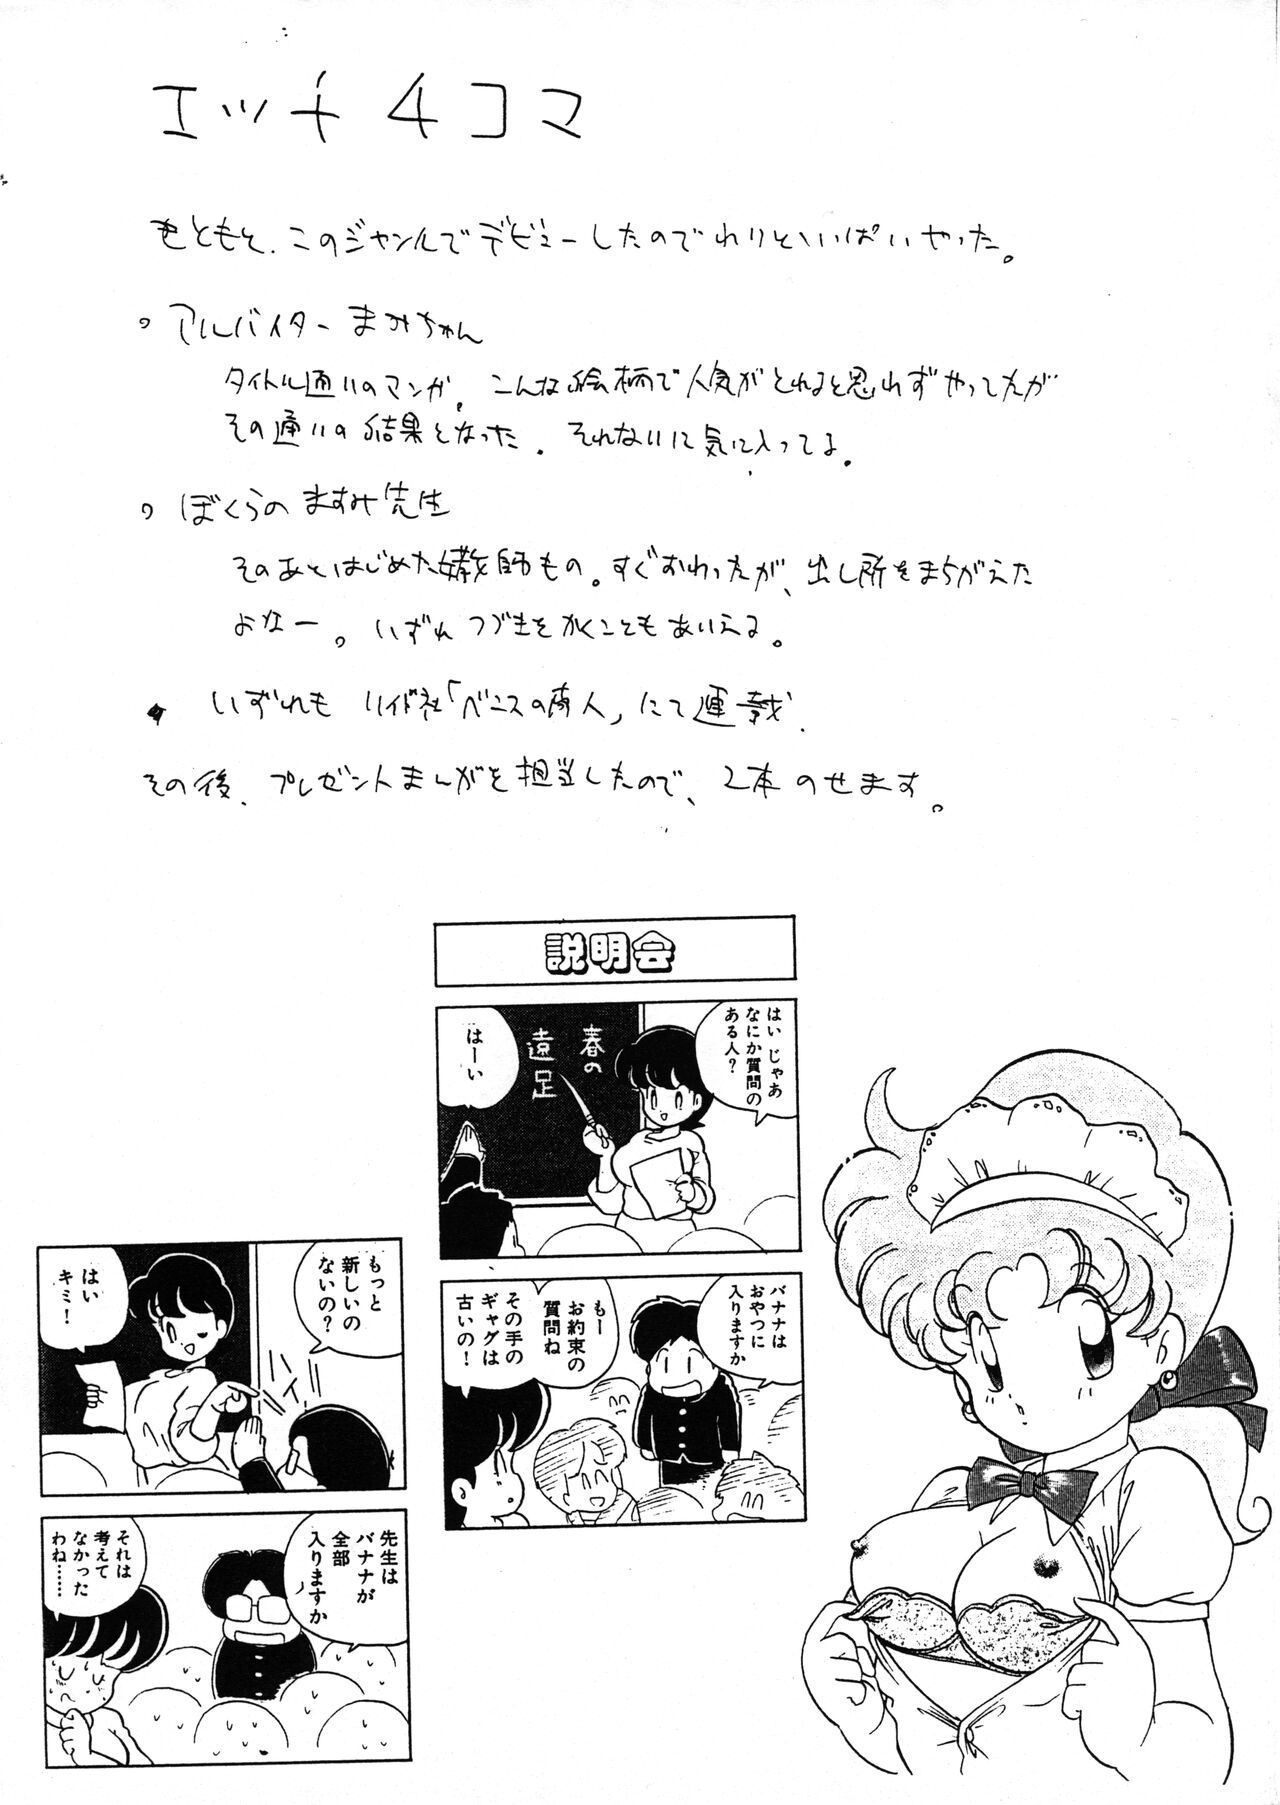 エッチ4コマ
もともと、このジャンルでデビューしたのでわりといっぱいやった。
。アルバイターまみちゃん
タイトル通りのマンガ。こんな絵柄で人気がとれると思れずやってたが
その通りの結果となった。それないに気に入ってる。
。ぼくらのますみ先生
そのあとはじめた女教師もの。すぐおわったが、出し所をまちがえた
よなー。いずれつづきをかくことも
いずれもリイド社「ベニスの商人」にて連載.
その後、プレゼントまんがを担当したので、2本のせます。
説明会
はい じゃあ
なにか質問の
ある人？
春の
遠足
はーい
バナナは
おやつに
入りますか
もー
お約束の
質問ね
その手の
ギャグは
古いの！
もっと
新しいの
ないの？
ハイ
はい
キミ！
先生は
バナナが
全部
入りますか
それは
考えて
なかった
わね……